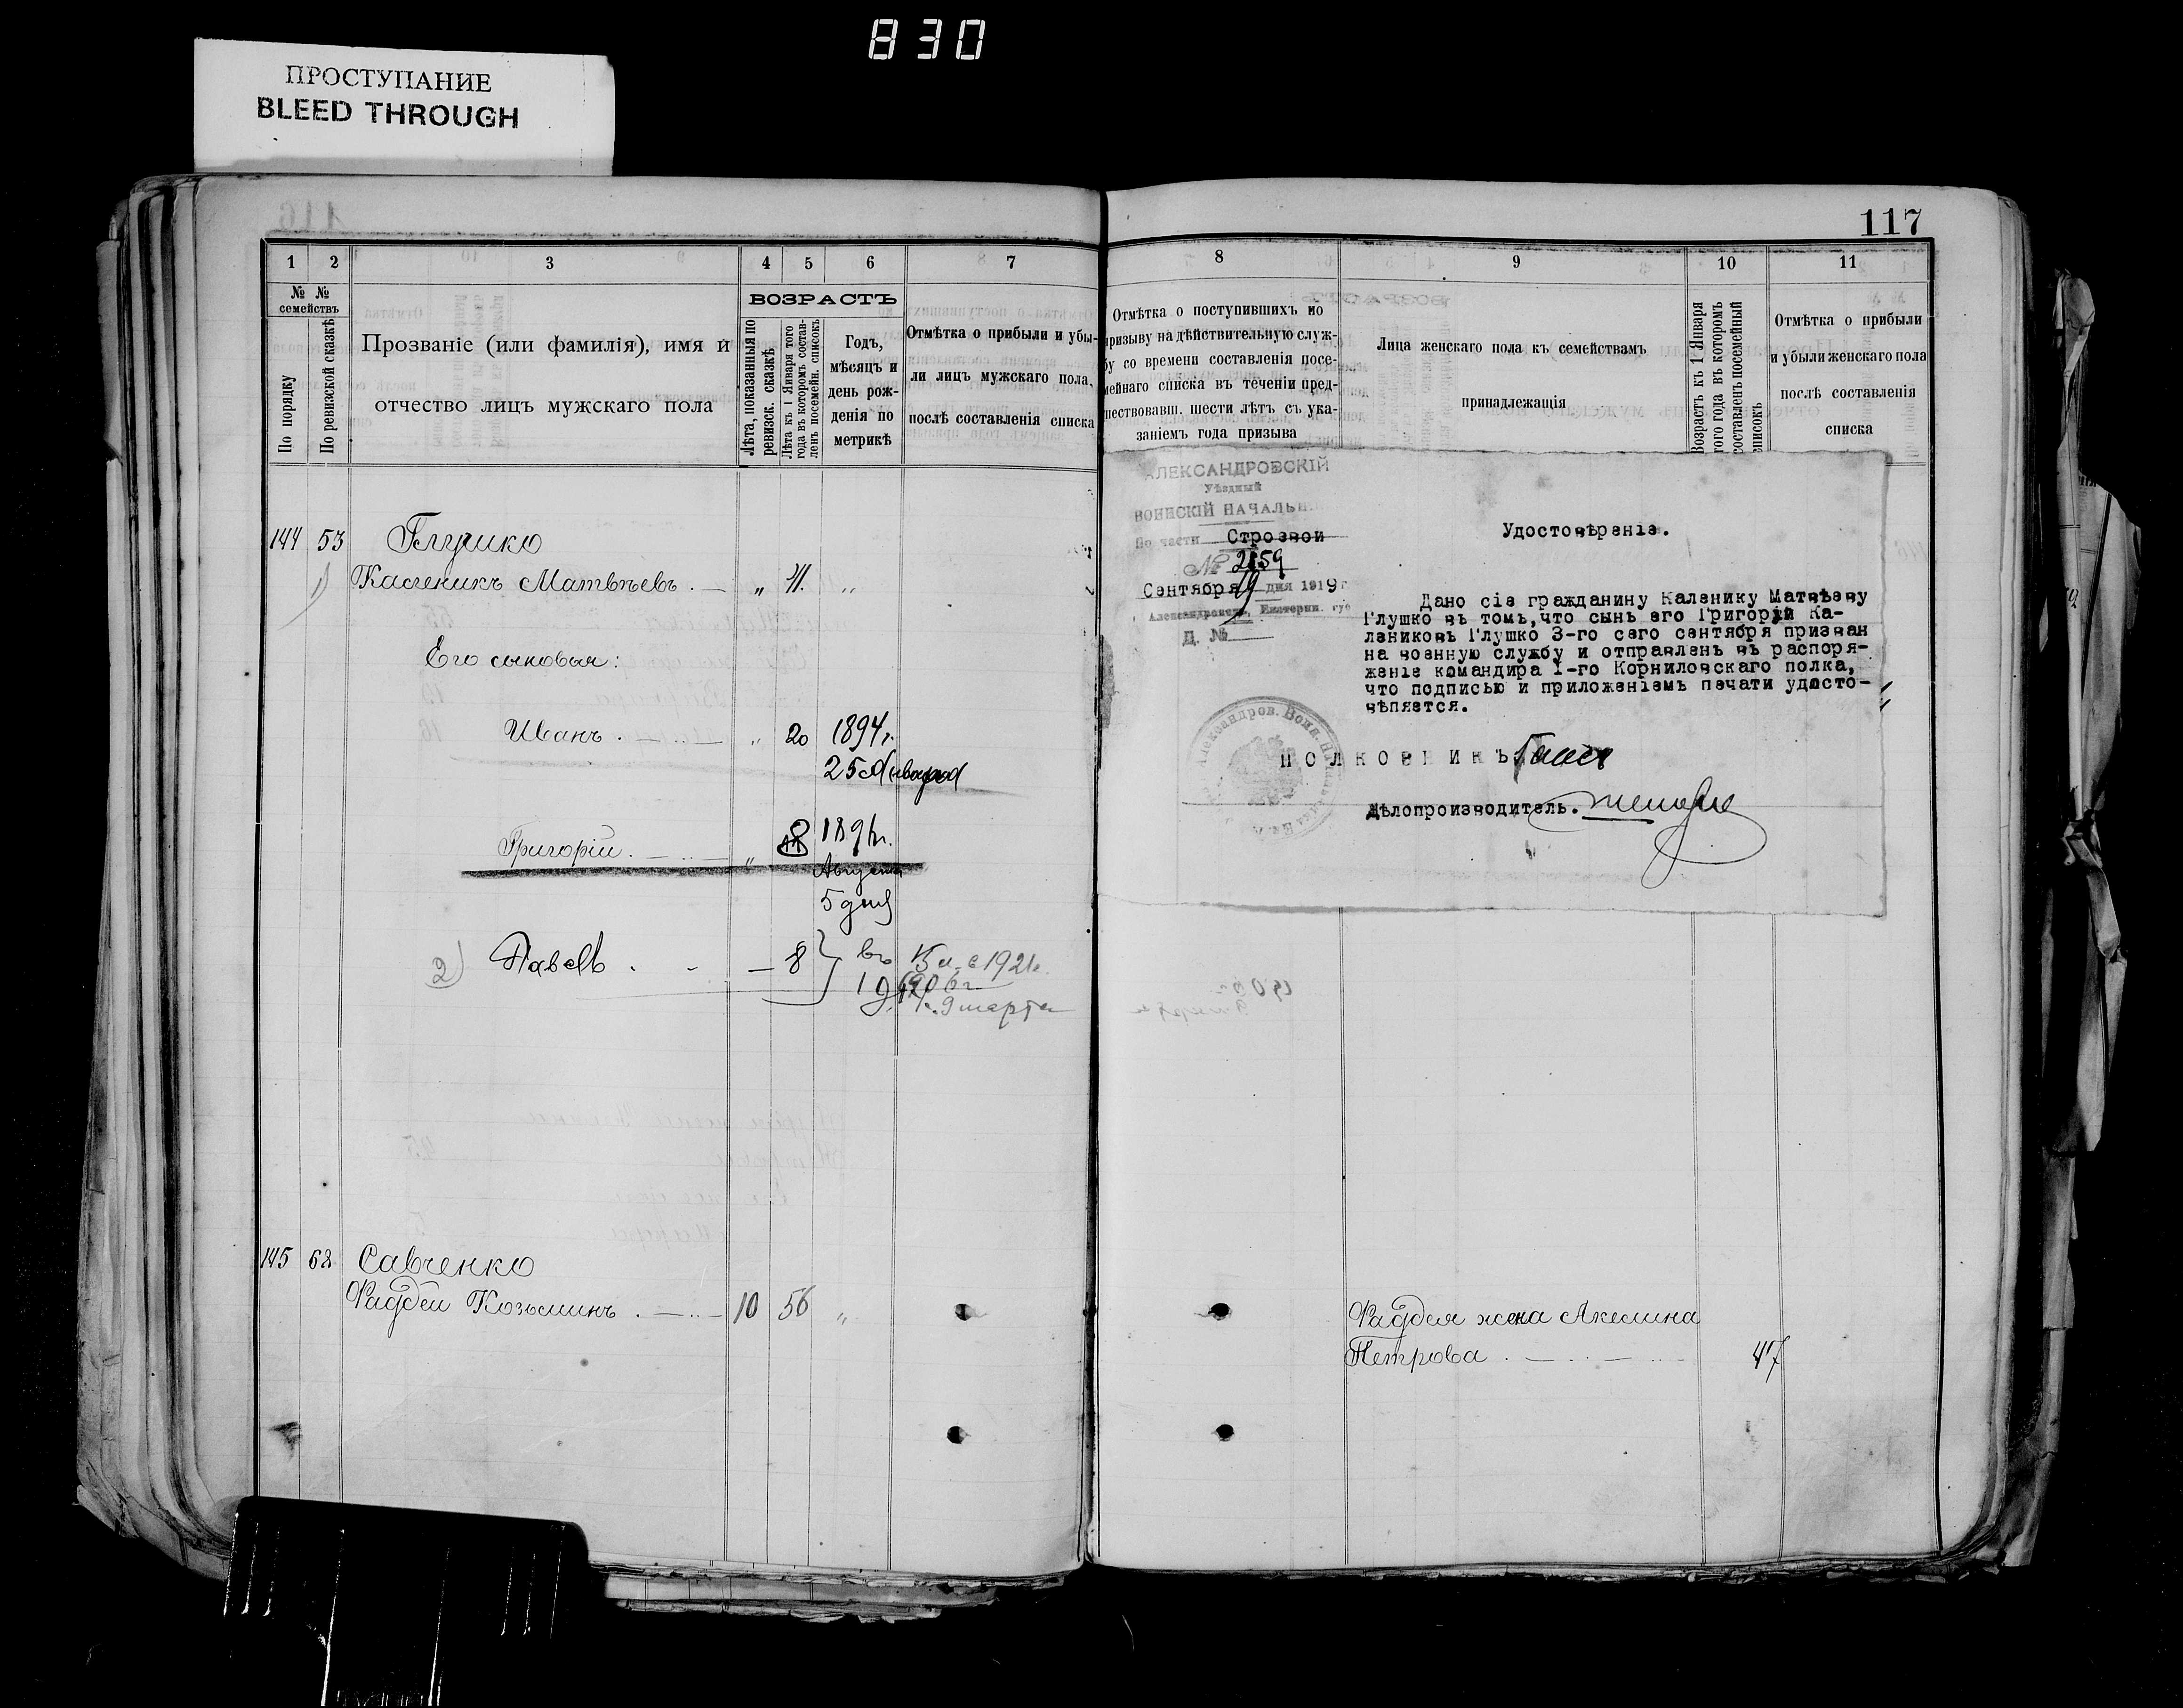 830
ПРОСТУПАНИЕ
BLEED THROUGH
117
1 2 3 4 5 6 7
№ № семействъ
По порядку
По ревизской сказкѣ
Прозваніе (или фамилія), имя и
отчество лицъ мужскаго пола
ВОЗРАСТЪ
Лѣта, показанныя по
ревизск. сказкѣ
Лѣта къ 1 Января того
года въ которомъ состав-
ленъ посемейн. списокъ
Годъ,
мѣсяцъ и
день рож-
денія по
метрикѣ
Отмѣтка о прибыли и убы-
ли лицъ мужскаго пола,
послѣ составленія списка
144 53 Глушко
1) Каленикъ Матвѣевъ . — „ 41. „
Его сыновья:
Иванъ . — .. — „ 20 1894 г.
25
Григорій . — .. — „
Августа
5 дня
2) Павелъ . . — 8 въ
1906 г.
9 марта
145 68 Савченко
Фаддей Козьминъ . — .. — 10 56 „
8 9 10 11
Отмѣтка о поступившихъ по
призыву на дѣйствительную служ-
бу со времени составленія посе-
мейнаго списка въ теченіи пред-
шествовавш. шести лѣтъ съ ука-
заніемъ года призыва
Лица женскаго пола къ семействамъ
принадлежащія
Возрастъ къ 1 Января
того года въ которомъ
составленъ посемейный
списокъ
Отмѣтка о прибыли
и убыли женскаго пола
послѣ составленія
списка
АЛЕКСАНДРОВСКІЙ
Уѣздный
ВОИНСКІЙ НАЧАЛЬН
По части Строевой
№ 2159
Сентября 19 дня 1919 г
Александровскъ, Екатерин. губ
Д. №
Удостовѣреніе.
Дано сіе гражданину Каленику Матвѣеву
Глушко въ томъ,что сынъ его Григорій Ка-
лениковъ Глушко 3-го сего сентября призван
на военную службу и отправленъ въ распоря-
женіе командира 1-го Корниловскаго полка,
что подписью и приложеніемъ печати удосто-
вѣряется.
ПОЛКОВНИКЪ
Дѣлопроизводитель.
Фаддея жена Акелина
Петрова . — .. — 47